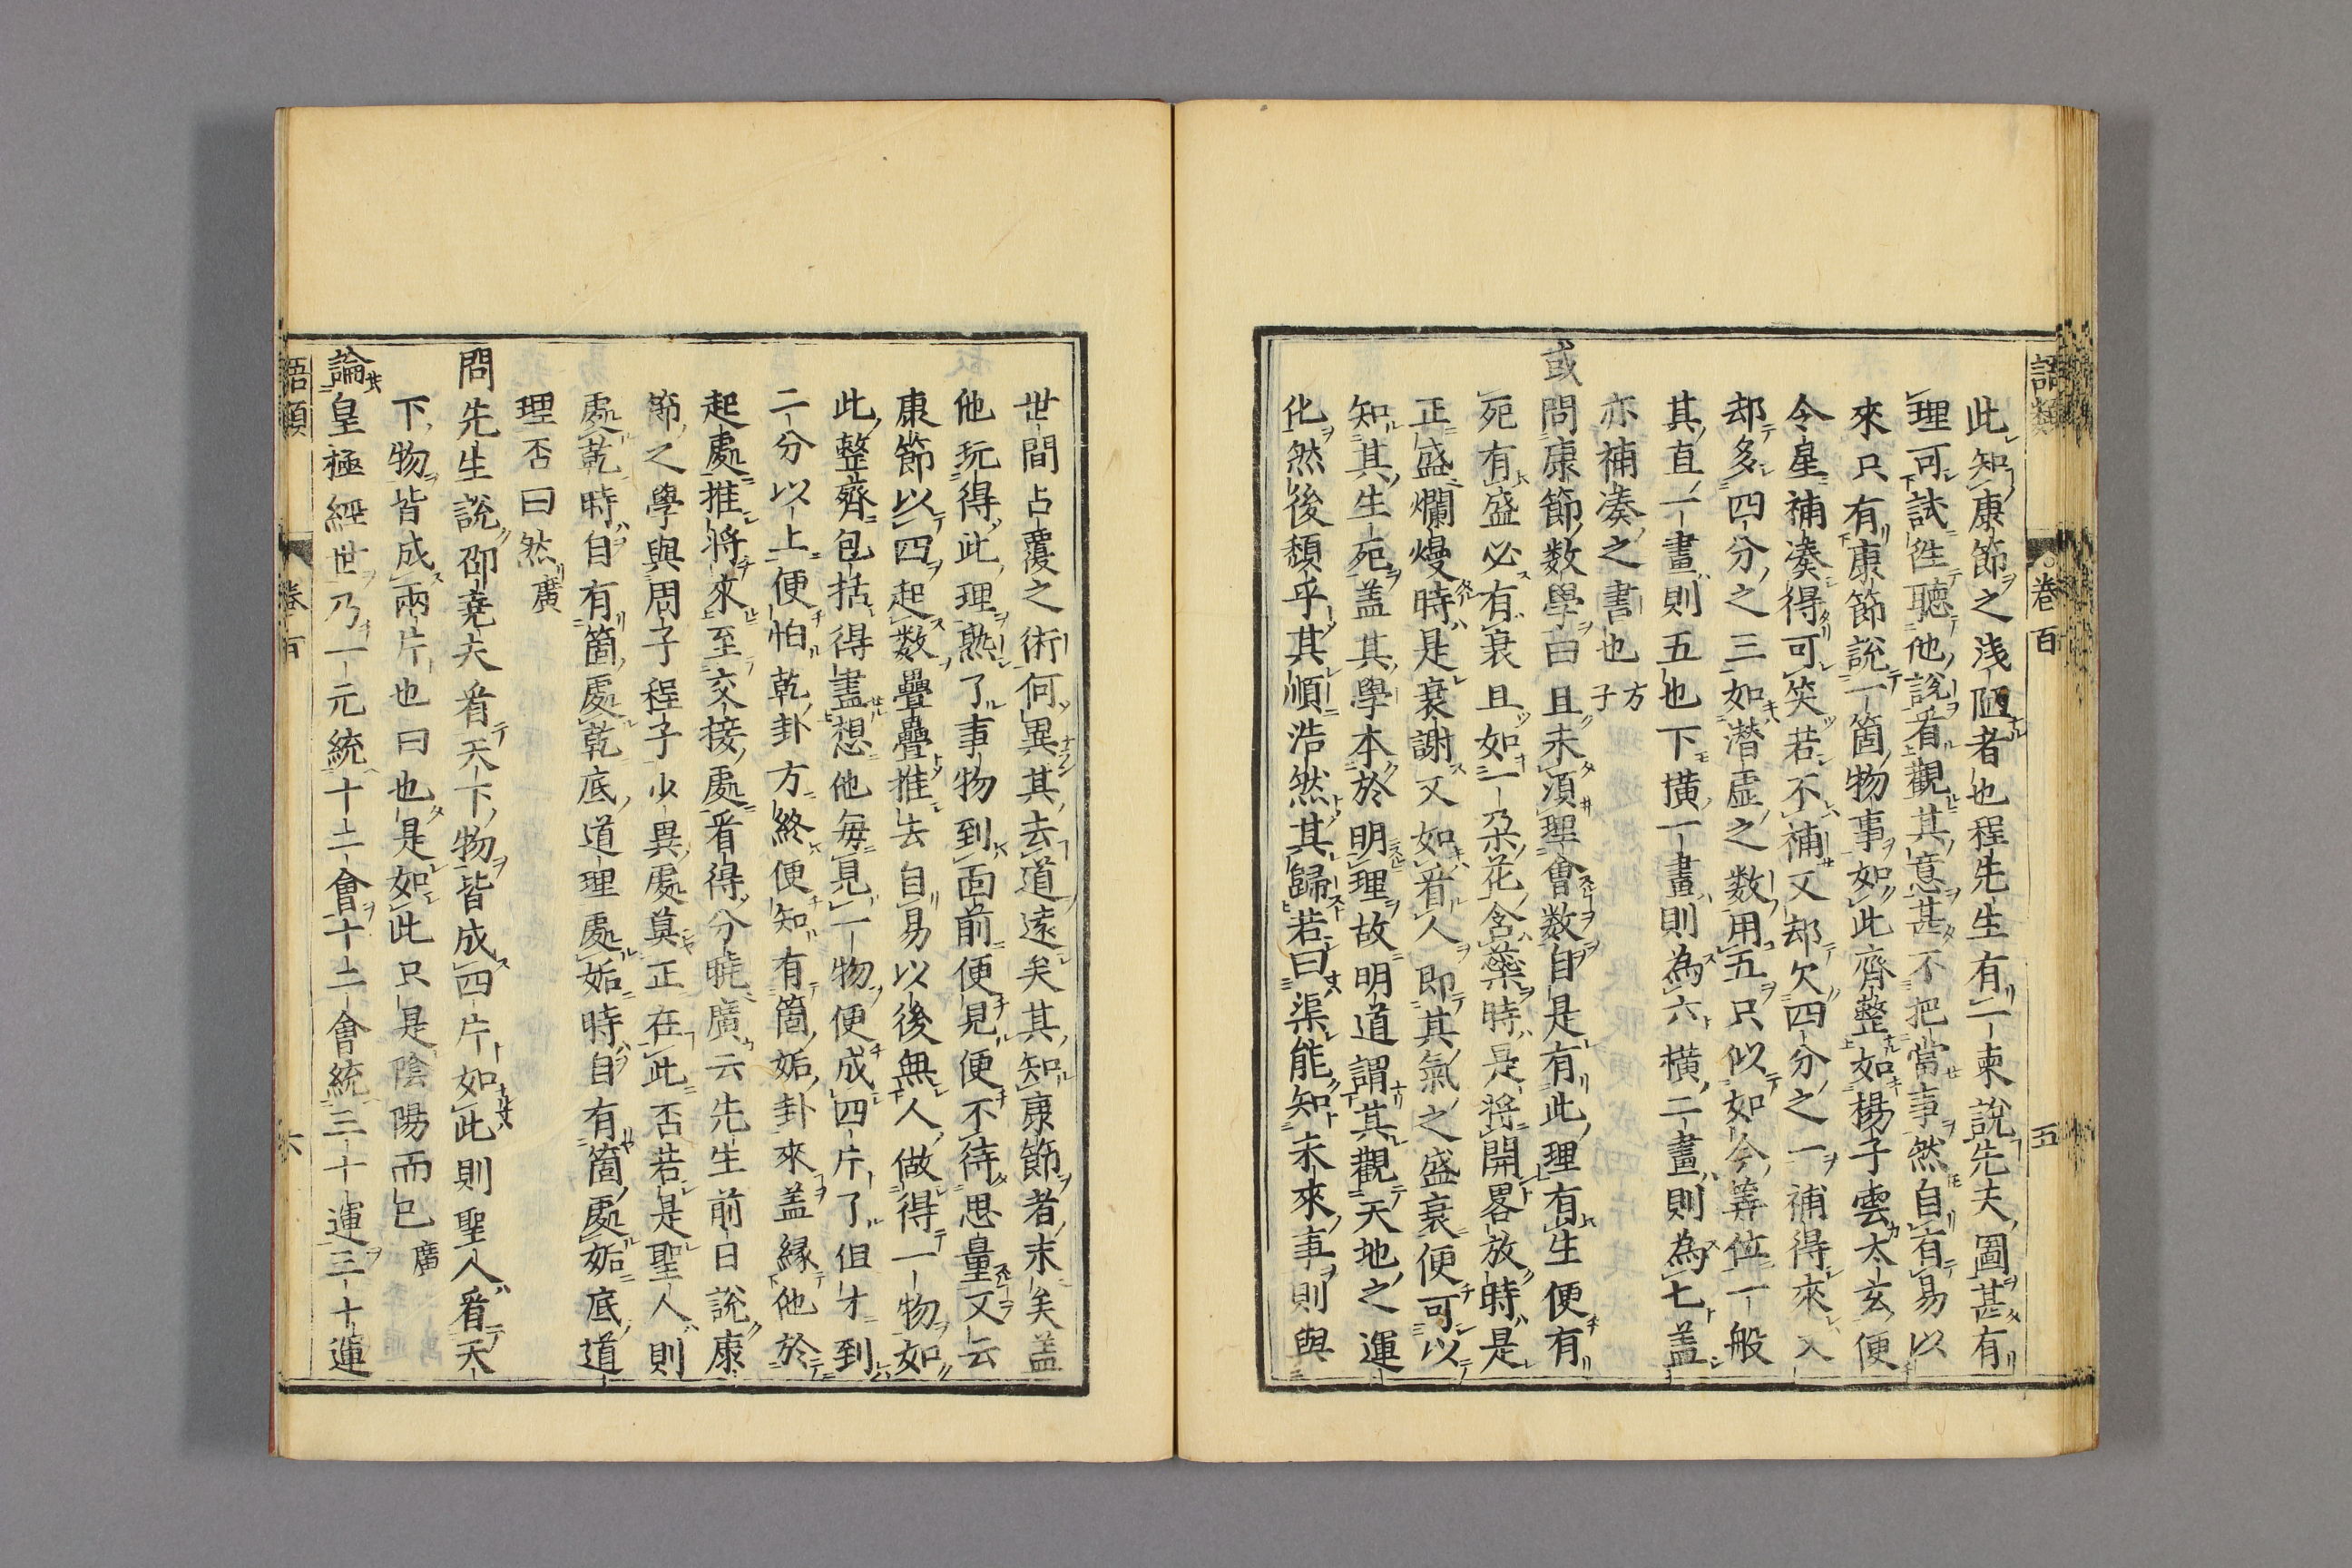 語類
卷百
五
此知康節之淺陋者也程先生有一柬說先夫圖甚有
理可試往聽他說看觀其意甚不把當事然自有易以
來只有康節說一箇物事如此齊整如楊子雲太玄便
令星補湊得可笑若不補又却欠四分之一補得來又
却多四分之三如潜虛之数用五只似如今筭位一般
其直一畫則五也下橫一畫則為六橫二畫則為七盖
亦補湊之書也 方子
或問康節数學曰且未湏理會数自是有此理有生便有
死有盛必有衰且如一朶花含蘂時是將開畧放時是
正盛爛熳時是衰謝又如看人即其氣之盛衰便可以
知其生死盖其學本於明理故明道謂其觀天地之運
化然後頽乎其順浩然其歸若曰渠能知未來事則與
世間占覆之術何異其去道逺矣其知康節者末矣盖
他玩得此理熟了事物到面前便見便不待思量又云
康節以四起数疊疊推去自易以後無人做得一物如
此整齊包括得盡想他每見一物便成四片了但才到
二分以上便怕乾卦方終便知有箇姤卦來盖縁他於
起處推將來至交接處看得分曉廣云先生前日說康
節之學與周子程子少異處莫正在此否若是聖人則
處乾時自有箇處乾底道理處姤時自有箇處姤底道
理否曰然 廣
問先生說邵堯夫看天下物皆成四片如此則聖人看天
下物皆成兩片也曰也是如此只是陰陽而已 廣
論皇極經世乃一元統十二會十二會統三十運三十運
語類
卷百
六